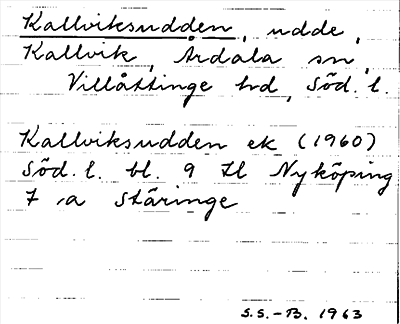 Kallviksudden, udde,
Kallvik, Årdala sn,
Villåttinge hd, Söd. l.
Kallviksudden ek (1960)
Söd. l. bl. 9 Il Nyköping
7 a Stäringe
S.S.-B. 1963